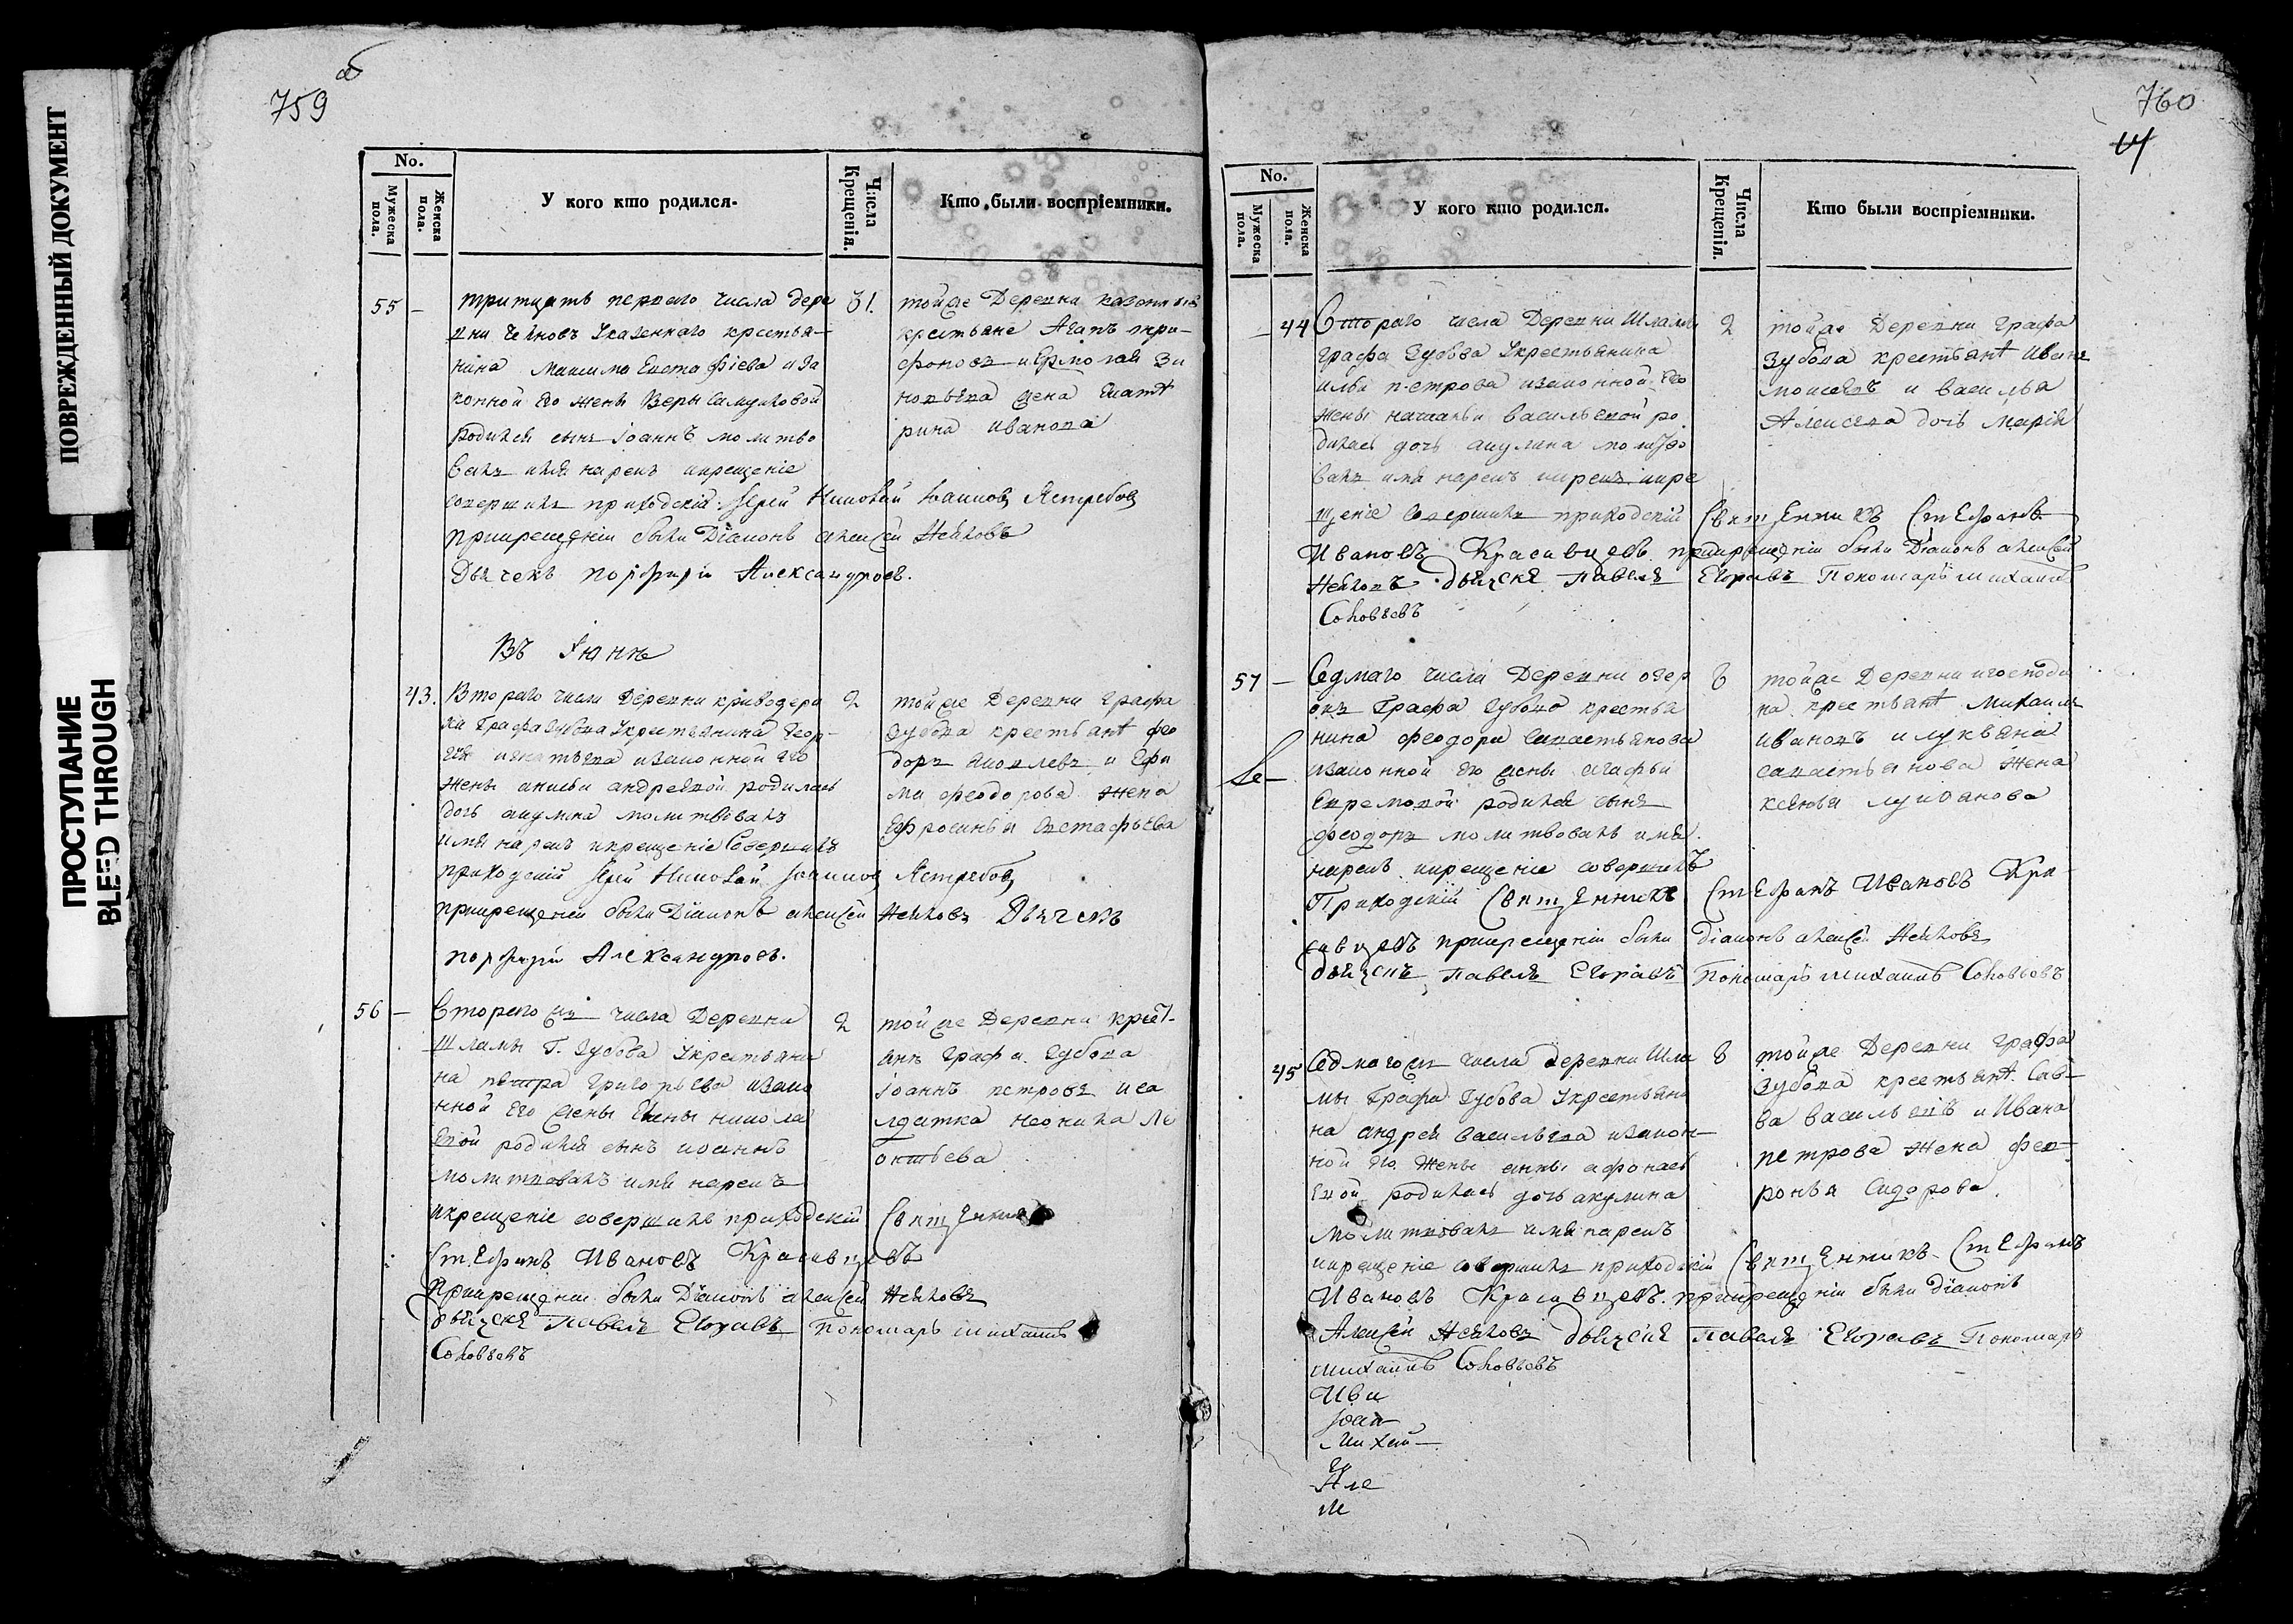 ПОВРЕЖДЕННЫЙ ДОКУМЕНТ
ПРОСТУПАНИЕ
BLEED THROUGH
759
No.
Мужеска пола.
Женска пола.
У кого кто родился.
Числа Крещенія.
Кто были воспріемники.
55 — тритцать перваго числа дере
вни казеннаго крестья—
нина Максима Евстафіева иза
конной его жены Веры Самуиловой
родился сынъ Іоаннъ молитво
валъ имя нарекъ икрещеніе
совершилъ приходскій Іерей Николай Іоанновъ Ястребовъ
прикрещеніи были Діаконъ Алексей
Дьячекъ порфирій Александровъ.
31.
тойже Деревни казенныя
крестьяне Агапъ три—
фоновъ иЕрмолая Зи
новьева жена Екате
рина иванова
Въ Іюнѣ
43. Втораго числа Деревни криводери
хи Графа Зубова Укрестьянина Геор—
гія игнатьева изаконной его
жены андреевой родилась
дочь акулина молитвовалъ
имя нарекъ икрещеніе Совершилъ
приходскій Іерей Николай Іоанновъ Ястребовъ
прикрещеніи были Діаконъ алексей Дьячекъ
порфирій Александровъ.
2
тойже Деревни Графа
Зубова крестьянѣ фео
доръ Яковлевъ и Ефи
ма феодорова жена
Ефросинья Астафьева
56 — Втораго числа Деревни
Шламы Г. Зубова Укрестьяни
на петра григорьева изако
нной его жены Елены никола
евой родился сынъ иоаннъ
молитвовалъ имя нарекъ
икрещеніе совершилъ приходскій Священникъ
Стефанъ Ивановъ Красивцевъ
Прикрещеніи были Діаконъ алексей
дьячекъ павелъ Егоравъ Пономарь михаилъ
Соловьевъ
2
тойже Деревни крест—
янѣ графа Зубова
іоаннъ петровъ иса
лдатка неонила Ле
онтьева
760
No.
Мужеска пола.
Женска пола.
У кого кто родился.
Числа Крещенія.
Кто были воспріемники.
— 44 Втораго числа Деревни Шламы
графа Зубова Укрестьянина
ильи петрова изаконной его
жены натальи васильевой ро
дилась дочь акулина молитво
валъ имя нарекъ икре
щеніе совершилъ приходскій Священникъ Стефанъ
Ивановъ Красивцевъ. прикрещеніи были Діаконъ алексей
дьячекъ павелъ Егоравъ Пономарь михаилъ
Соловьевъ
2
тойже Деревни графа
Зубова крестьянѣ иванъ
моисеевъ и василья
Алексеева дочь марія
57 — Седмаго числа Деревни озер
окъ Графа Зубова крестья
нина феодора Савастьянова
изаконной его жены агафьи
Ефремовой родился сынъ
феодоръ молитвовалъ имя
нарекъ икрещеніе совершилъ
Приходскій Священникъ Стефанъ Ивановъ Кра
сивцевъ прикрещеніи были діаконъ алексей
дьячекъ павелъ Егоравъ Пономарь михаилъ Соловьовъ
8
тойже Деревни игосподи
на крестьянѣ Михаилъ
ивановъ илукьяна
савастьянова жена
ксенья лукьянова
45 Седмаго числа деревни Шла
мы Графа Зубова Укрестьяни
на андрея васильева изакон—
ной его жены анны афонась
евой родилась дочь акулина
молитвовалъ имя нарекъ
икрещеніе совершилъ приходскій Священникъ Стефанъ
Ивановъ Красивцевъ. прикрещеніи были діаконъ
Алексей дьячекъ павелъ Егоравъ Пономарь
михаилъ Соловьевъ
8
тойже Деревни графа
Зубова крестьянѣ Сав—
ва васильевъ и Ивана
петрова жена фев—
ронья Сидорова.
Ива
Іоан
Михаи—
Але
М